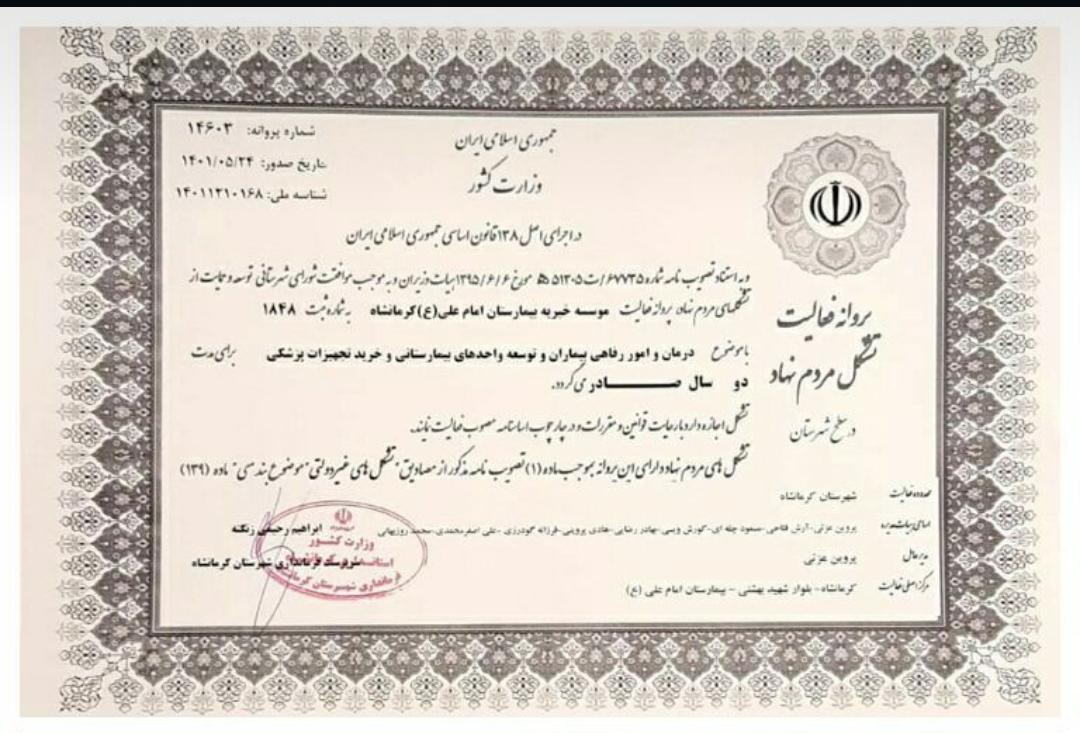 جمهوری اسلامی ایران
وزارت کشور
شماره پروانه: ۱۴۶۰۳
تاریخ صدور: ۱۴۰۱/۰۵/۲۴
شناسه ملی: ۱۴۰۱۱۲۱۰۱۶۸
در اجرای اصل ۱۳۸ قانون اساسی جمهوری اسلامی ایران
و به استناد تصویب نامه شماره ۶۷۷۳۵/ت۵۱۳۰۵ه مورخ ۱۳۹۵/۶/۶ هیات وزیران و به موجب موافقت شورای شهرستانی توسعه و حمایت از
تشکلهای مردم نهاد، پروانه فعالیت موسسه خیریه بیمارستان امام علی(ع)کرمانشاه به شماره ثبت ۱۸۴۸
با موضوع درمان و امور رفاهی بیماران و توسعه واحدهای بیمارستانی و خرید تجهیزات پزشکی برای مدت
دو سال صادر می گردد.
تشکل اجازه دارد با رعایت قوانین و مقررات و در چارچوب اساسنامه مصوب فعالیت نماید.
تشکل های مردم نهاد دارای این پروانه بموجب ماده (۱) تصویب نامه مذکور از مصادیق "تشکل های غیردولتی" موضوع بند سی" ماده (۱۳۹)
پروانه فعالیت
تشکل مردم نهاد
در سطح شهرستان
محدوده فعالیت شهرستان کرمانشاه
اسامی هیات مدیره پروین عزتی-آرش فتاحی-مسعود چله ای-کورش ویسی-بهادر رضایی-هادی پروینی-فرزانه گودرزی -علی اصغر محمدی-محمد روزبهانی
مدیرعامل پروین عزتی
مرکز اصلی فعالیت کرمانشاه- بلوار شهید بهشتی - بیمارستان امام علی (ع)
ابراهیم رحیمی زنگنه
سرپرست فرمانداری شهرستان کرمانشاه
وزارت کشور
فرمانداری شهرستان کرمانشاه